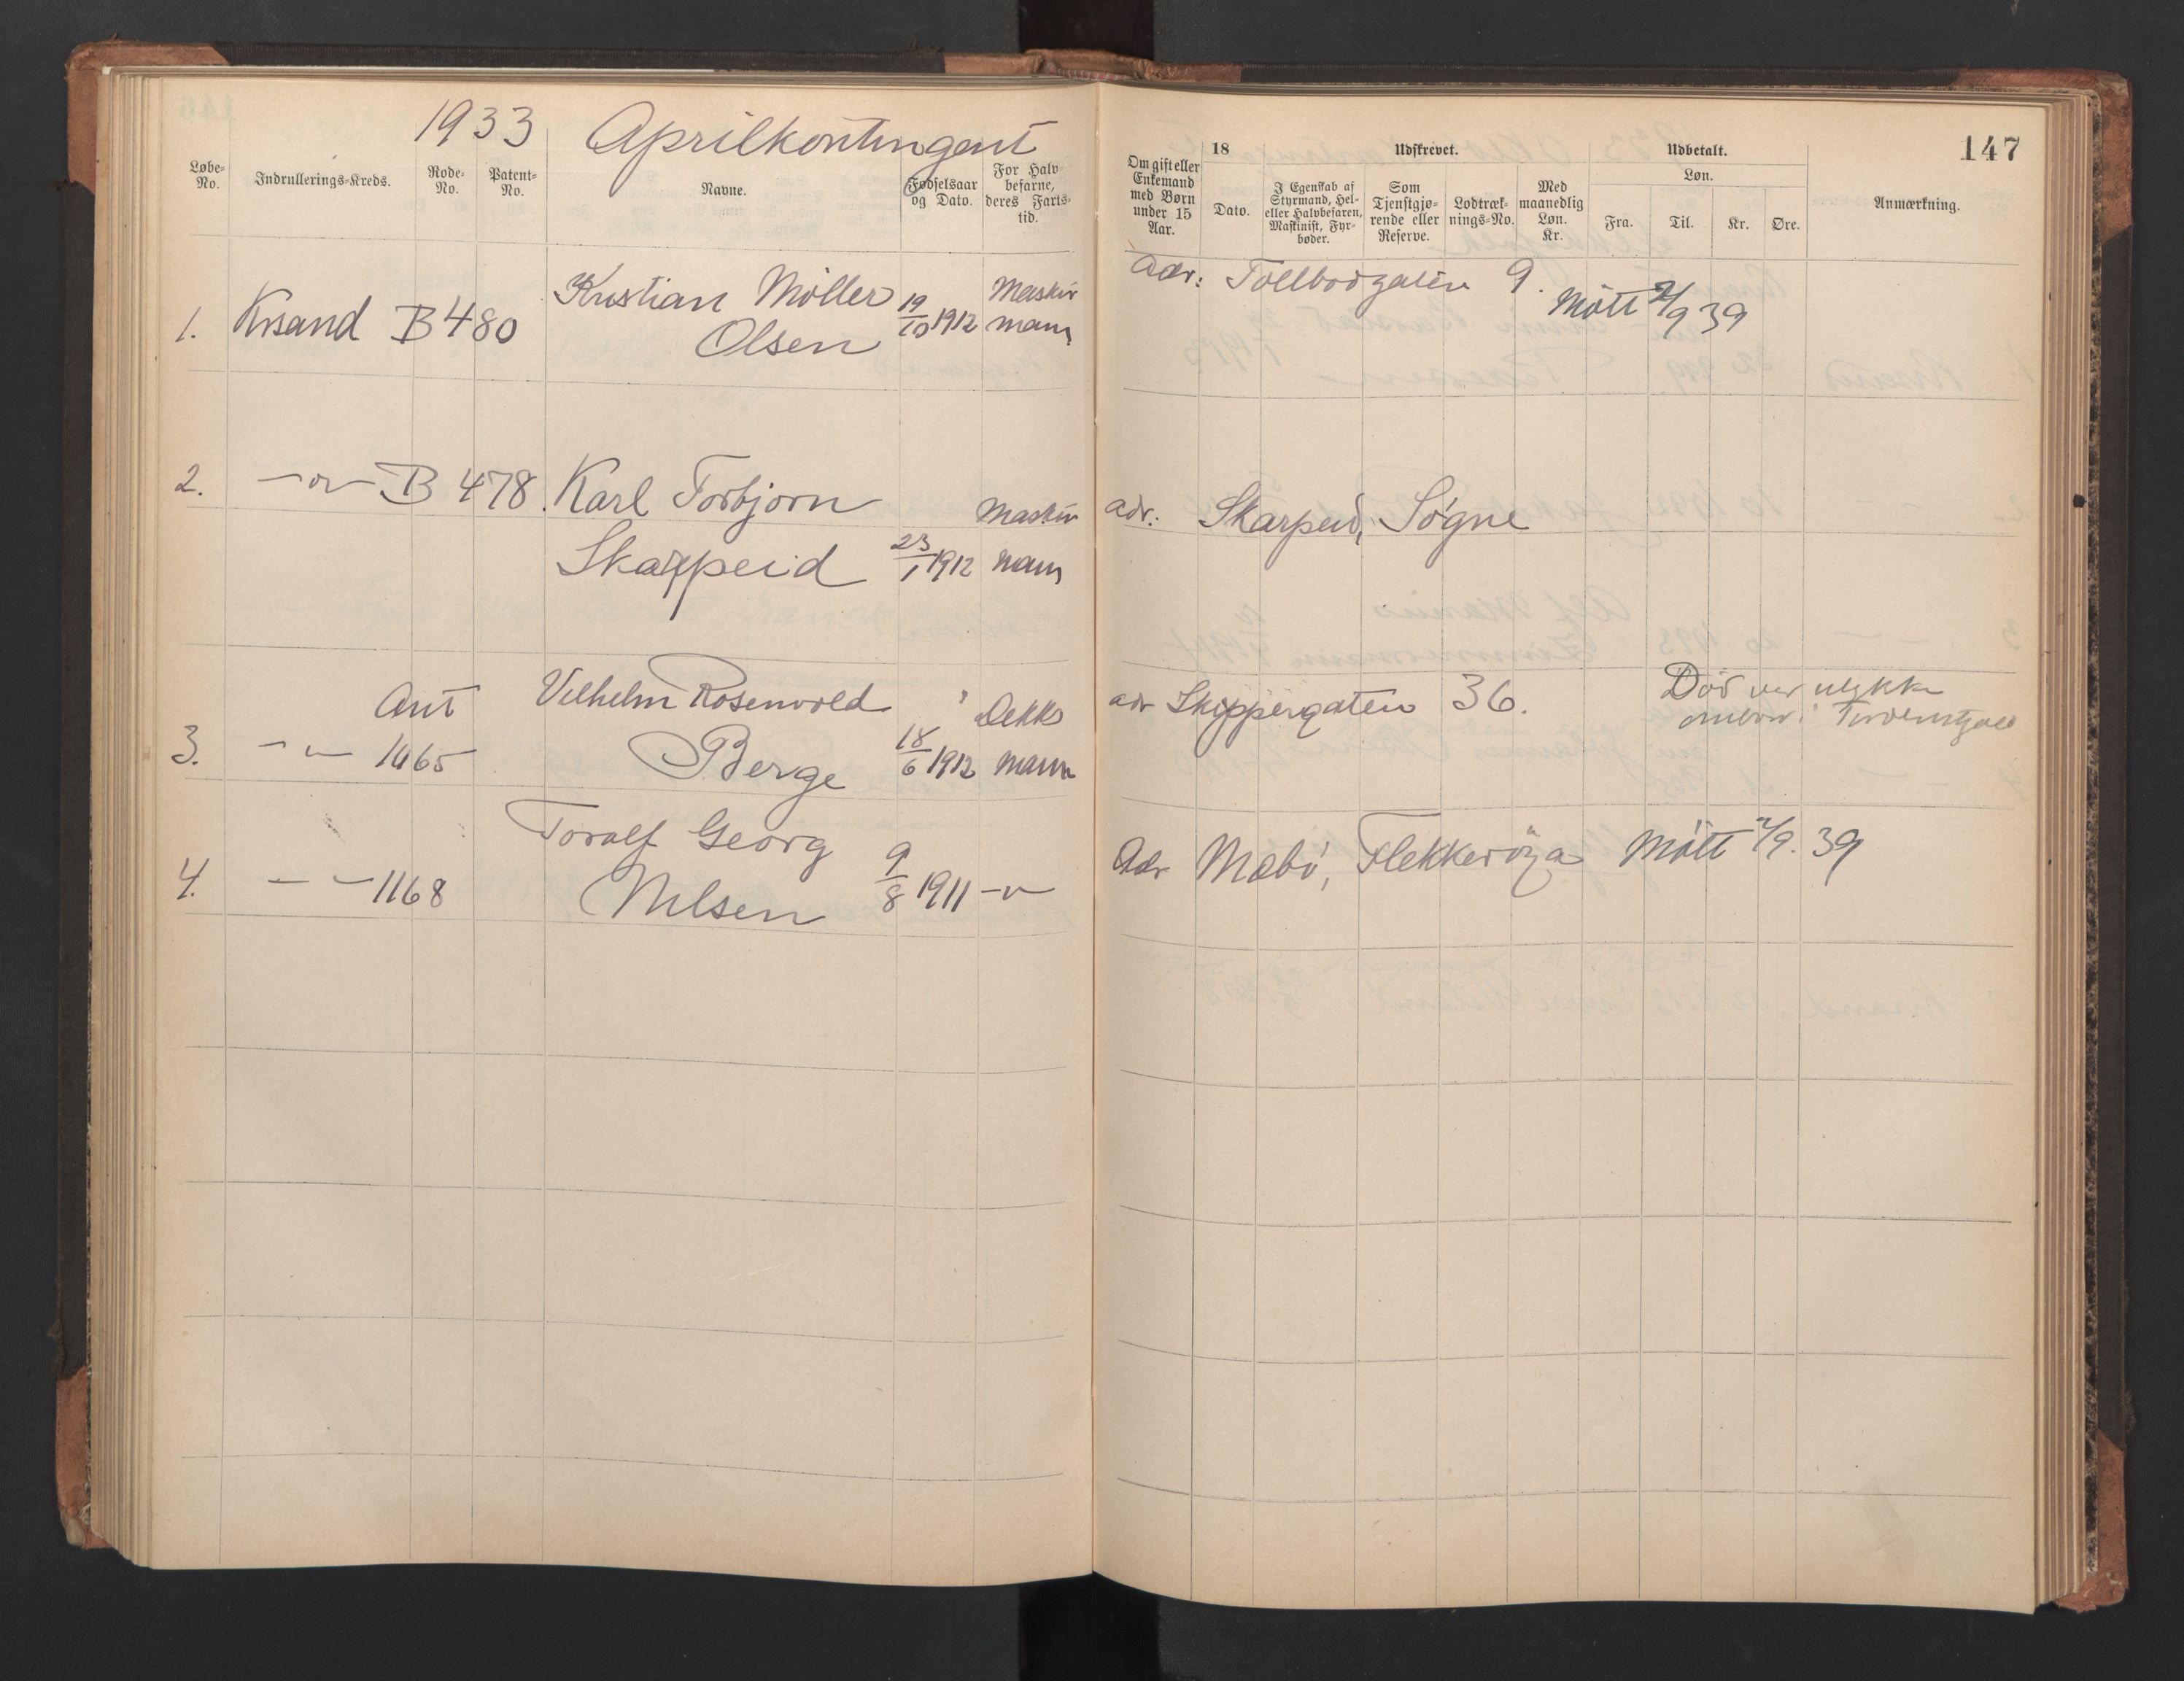 1933 Aprilkontingent
Løbe-No. Indrullerings-Kreds. Rode-No. Patent-No. Navne. Fødselsaar og Dato. For Halvbefarne, deres Fartstid.
147
Om gift eller Enkemand med Børn under 15 Aar. 18 Dato. Udskrevet. I Egenskab af Styrmand, Hel- eller Halvbefaren, Maskinist, Fyrbøder. Som Tjenstgjørende eller Reserve. Lodtræknings-No. Med maanedlig Løn. Kr. Udbetalt. Løn. Fra. Til. Kr. Øre. Anmærkning.
1. Krsand B 480 Kristian Møller Olsen 19/10 1912 Maskin mann
Adr: Tollbodgaten 9. Møtt 2/9 39
2. —"— B 478. Karl Torbjørn Skarpeid 23/1 1912 Maskin mann
adr. Skarpeid, Søgne
3. —"— Ant 1065 Vilhelm Rosenvold Berge 18/6 1912 Dekks mann
adr Skippergaten 36. Død ved ulykke ombord i
4. —"— 1168 Toralf Georg Nilsen 9/8 1911 —"—
Adr Mæbø, Flekkerøya Møtt 2/9. 39